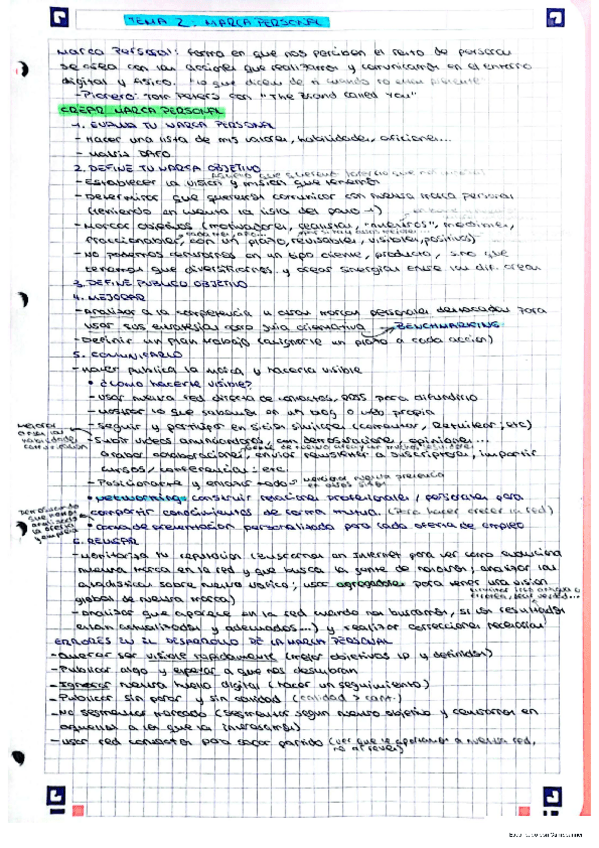 TEMA 2: MARCA PERSONAL
Marca Personal: forma en que nos perciben el resto de personas
se crea con las acciones que realizamos y comunicamos en el entorno
digital y físico. "lo que dicen de ti cuando no estás presente"
- Pionero: Tom Peters con "The Brand called You"
CREAR MARCA PERSONAL
1. EVALUA TU MARCA PERSONAL
- Hacer una lista de mis valores, habilidades, aficiones...
- Matriz DAFO
2. DEFINE TU MARCA OBJETIVO
- Establecer la visión y misión que tenemos
- Determinar que queremos comunicar con nuestra marca personal
(teniendo en cuenta la lista del paso 1)
- Marcar objetivos (motivadores, realistas, "nuestros", medibles,
fraccionables, con un plazo, revisables, visibles, positivos)
- No podemos centrarnos en un tipo cliente, producto, sino que
tenemos que diversificarnos y crear sinergias entre las dif. áreas
3. DEFINE PUBLICO OBJETIVO
4. MEJORAR
- analizar a la competencia u otras marcas personales destacadas para
usar sus estrategias como guia orientativa → BENCHMARKING
- Definir un plan trabajo (asignarle un plazo a cada acción)
5. COMUNICARLO
- Hacer publica la marca y hacerla visible
• ¿Como hacerla visible?
- usar nuestra red directa de contactos, RRSS para difundirlo
- Mostrar lo que sabemos en un blog o web propia
- Seguir y participar en sitios similares (comentar, Retuitear, etc)
- Subir videos con demostraciones, opiniones...
colaboraciones, enviar newsletter a suscriptores, impartir
cursos/conferencias, etc.
- Posicionarte y enlazar
• Networking: construir relaciones profesionales/personales para
compartir conocimientos de forma mutua. (Para hacer crecer la red)
• Carta de presentación personalizada para cada oferta de empleo
6. REVISAR
- Monitoriza tu reputación (buscarnos en Internet para ver como evoluciona
nuestra marca en la red y que busca la gente de nosotros; analizar las
estadísticas sobre nuestro tráfico; usar agregadores para tener una visión
global de nuestra marca)
- analizar que aparece en la red cuando nos buscamos, si los resultados
están actualizados y adecuados...) y realizar correcciones necesarias
ERRORES EN EL DESARROLLO DE LA MARCA PERSONAL
- Querer ser visible rapidamente (mejor objetivos lp y definidos)
- Publicar algo y esperar a que nos descubran
- Ignorar nuestra huella digital (hacer un seguimiento)
- Publicar sin parar y sin calidad (calidad > cant.)
- No segmentar mercado (segmentar según nuestro objetivo y centrarnos en
aquellos a los que le interesamos)
- usar red contactos para sacar partido (ver que le aportamos a nuestra red,
no al revés)